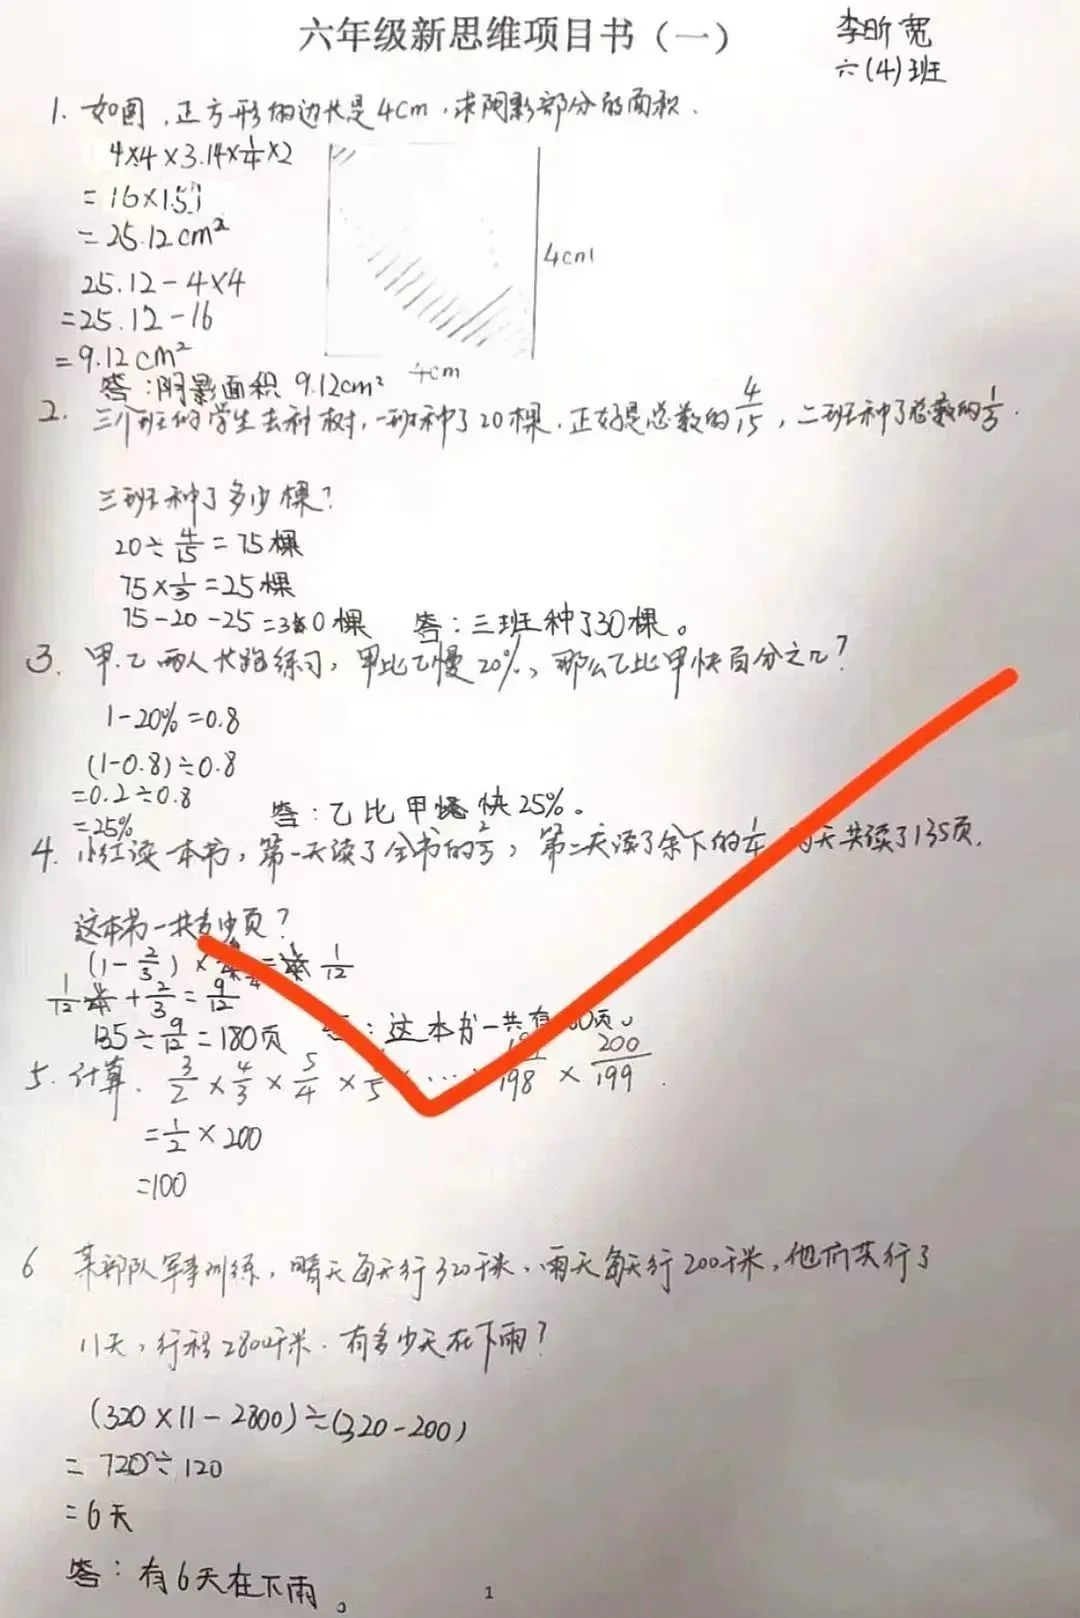 六年级新思维项目书（一）
李昕宽
六(4)班
1. 如图，正方形的边长是4cm，求阴影部分的面积.
4×4×3.14×1/4×2
=16×1.57
=25.12cm²
25.12-4×4
=25.12-16
=9.12cm²
4cm
4cm
答：阴影面积 9.12cm²
2. 三个班的学生去种树，一班种了20棵，正好是总数的4/15，二班种了总数的1/3.
三班种了多少棵？
20÷4/15=75棵
75×1/3=25棵
75-20-25=30棵 答：三班种了30棵。
3. 甲.乙两人长跑练习，甲比乙慢20%，那么乙比甲快百分之几？
1-20%=0.8
(1-0.8)÷0.8
=0.2÷0.8
=25%
答：乙比甲快25%。
4. 小红读一本书，第一天读了全书的2/3，第二天读了余下的1/4，天共读了135页.
这本书一共多少页？
(1-2/3)×1/4=1/12
1/12+2/3=9/12
135÷9/12=180页 这本书一共有0页。
5. 计算. 3/2×4/3×5/4×…198×200/199.
=1/2×200
=100
6 某部队军事训练，晴天每天行320千米，雨天每天行200千米，他们共行了
11天，行程2800千米. 有多少天在下雨？
(320×11-2800)÷(320-200)
=720÷120
=6天
答：有6天在下雨。
1